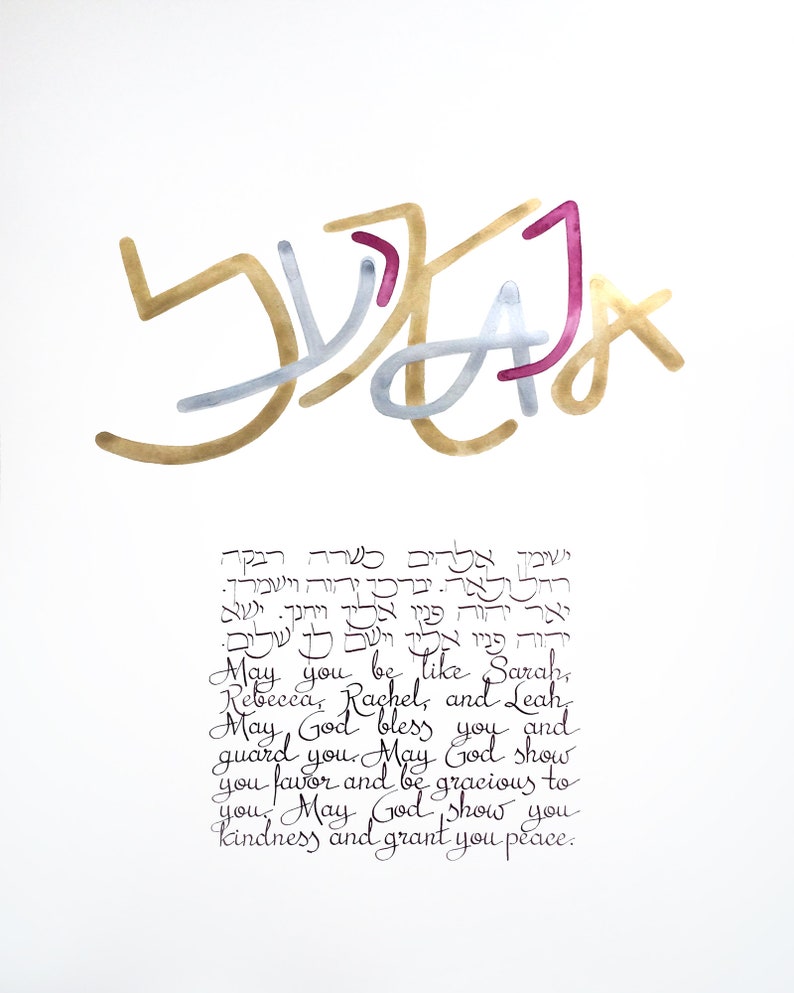 ישימך אלהים כשרה רבקה
רחל ולאה. יברכך יהוה וישמרך.
יאר יהוה פניו אליך ויחנך. ישא
יהוה פניו אליך וישם לך שלום.
May you be like Sarah,
Rebecca, Rachel, and Leah.
May God bless you and
guard you. May God show
you favor and be gracious to
you. May God show you
kindness and grant you peace.